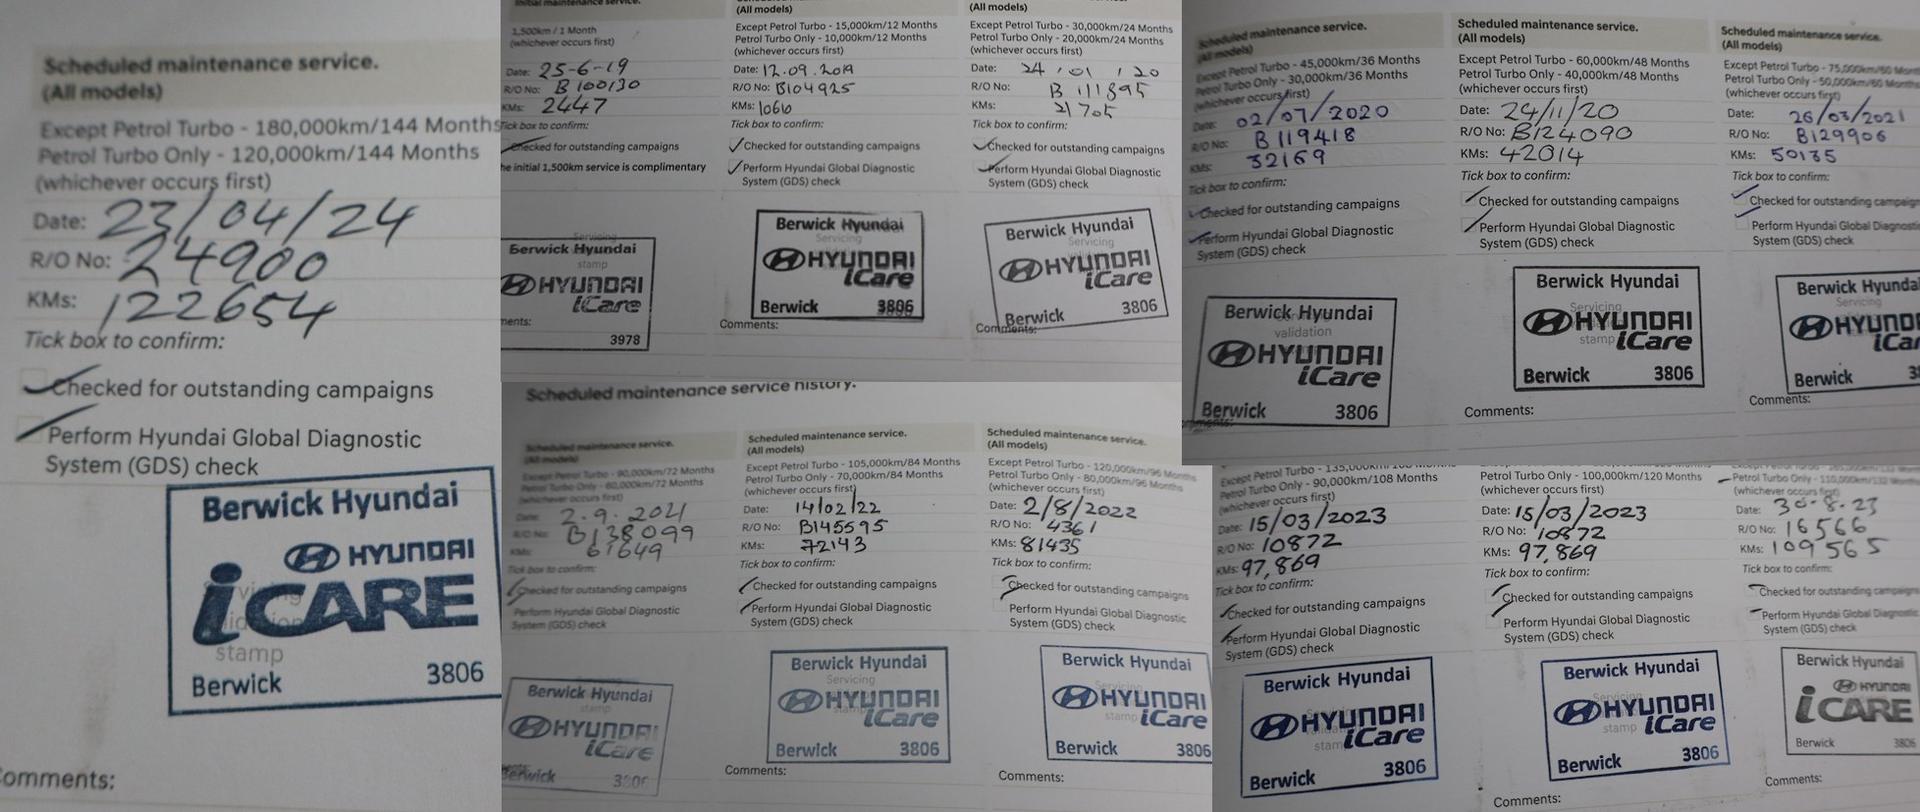 Scheduled maintenance service.
(All models)
Except Petrol Turbo - 180,000km/144 Months
Petrol Turbo Only - 120,000km/144 Months
(whichever occurs first)
Date: 23/04/24
R/O No: 24900
KMs: 122654
Tick box to confirm:
Checked for outstanding campaigns
Perform Hyundai Global Diagnostic
System (GDS) check
Berwick Hyundai
HYUNDAI
iCARE
stamp
Berwick 3806
Comments:
Initial maintenance service.
1,500km / 1 Month
(whichever occurs first)
Date: 25-6-19
R/O No: B100130
KMs: 2447
Tick box to confirm:
Checked for outstanding campaigns
he initial 1,500km service is complimentary
Servicing
Berwick Hyundai
stamp
HYUNDAI
iCare
ents:
3978
(All models)
Except Petrol Turbo - 15,000km/12 Months
Petrol Turbo Only - 10,000km/12 Months
(whichever occurs first)
Date: 12.09.2019
R/O No: B104925
KMs: 1066
Tick box to confirm:
Checked for outstanding campaigns
Perform Hyundai Global Diagnostic
System (GDS) check
Berwick Hyundai
Servicing
HYUNDAI
iCare
Berwick 3806
Comments:
(All models)
Except Petrol Turbo - 30,000km/24 Months
Petrol Turbo Only - 20,000km/24 Months
(whichever occurs first)
Date: 24/01/20
R/O No: B111895
KMs: 21705
Tick box to confirm:
Checked for outstanding campaigns
Perform Hyundai Global Diagnostic
System (GDS) check
Berwick Hyundai
Servicing
HYUNDAI
iCare
Berwick 3806
Comments:
Scheduled maintenance service.
(All models)
Except Petrol Turbo - 45,000km/36 Months
Petrol Turbo Only - 30,000km/36 Months
(whichever occurs first)
Date: 02/07/2020
R/O No: B119418
KMs: 32169
Tick box to confirm:
Checked for outstanding campaigns
Perform Hyundai Global Diagnostic
System (GDS) check
Berwick Hyundai
validation
HYUNDAI
iCare
Berwick 3806
Scheduled maintenance service.
(All models)
Except Petrol Turbo - 60,000km/48 Months
Petrol Turbo Only - 40,000km/48 Months
(whichever occurs first)
Date: 24/11/20
R/O No: B124090
KMs: 42014
Tick box to confirm:
Checked for outstanding campaigns
Perform Hyundai Global Diagnostic
System (GDS) check
Berwick Hyundai
Servicing
HYUNDAI
stamp iCare
Berwick 3806
Comments:
Scheduled maintenance service.
(All models)
Except Petrol Turbo - 75,000km/60 Months
Petrol Turbo Only - 50,000km/60 Months
(whichever occurs first)
Date: 26/03/2021
R/O No: B129906
KMs: 50135
Tick box to confirm:
Checked for outstanding campaigns
Perform Hyundai Global Diagnostic
System (GDS) check
Berwick Hyunda
Servicing
HYUND
stamp iCar
Berwick 3
Comments:
Scheduled maintenance service history.
Scheduled maintenance service.
(All models)
Except Petrol Turbo - 90,000km/72 Months
Petrol Turbo Only - 60,000km/72 Months
(whichever occurs first)
Date: 2.9.2021
R/O No: B138099
KMs: 61649
Tick box to confirm:
Checked for outstanding campaigns
Perform Hyundai Global Diagnostic
System (GDS) check
Berwick Hyundai
stamp
HYUNDAI
iCare
Berwick 3806
Scheduled maintenance service.
(All models)
Except Petrol Turbo - 105,000km/84 Months
Petrol Turbo Only - 70,000km/84 Months
(whichever occurs first)
Date: 14/02/22
R/O No: B145595
KMs: 72143
Tick box to confirm:
Checked for outstanding campaigns
Perform Hyundai Global Diagnostic
System (GDS) check
Berwick Hyundai
Servicing
HYUNDAI
stamp iCare
Berwick 3806
Comments:
Scheduled maintenance service.
(All models)
Except Petrol Turbo - 120,000km/96 Months
Petrol Turbo Only - 80,000km/96 Months
(whichever occurs first)
Date: 2/8/2022
R/O No: 4361
KMs: 81435
Tick box to confirm:
Checked for outstanding campaigns
Perform Hyundai Global Diagnostic
System (GDS) check
Berwick Hyundai
Servicing
HYUNDAI
stamp iCare
Berwick 3806
Comments:
Except Petrol Turbo - 135,000km/108 Months
Petrol Turbo Only - 90,000km/108 Months
(whichever occurs first)
Date: 15/03/2023
R/O No: 10872
KMs: 97,869
Tick box to confirm:
Checked for outstanding campaigns
Perform Hyundai Global Diagnostic
System (GDS) check
Berwick Hyundai
HYUNDAI
stamp iCare
Berwick 3806
Petrol Turbo Only - 100,000km/120 Months
(whichever occurs first)
Date: 15/03/2023
R/O No: 10872
KMs: 97,869
Tick box to confirm:
Checked for outstanding campaigns
Perform Hyundai Global Diagnostic
System (GDS) check
Berwick Hyundai
Servicing
HYUNDAI
stamp iCare
Berwick 3806
Comments:
Petrol Turbo Only - 110,000km/132 Months
(whichever occurs first)
Date: 30.8.23
R/O No: 16566
KMs: 109565
Tick box to confirm:
Checked for outstanding campaigns
Perform Hyundai Global Diagnostic
System (GDS) check
Berwick Hyundai
HYUNDAI
iCARE
Berwick 3806
Comments: